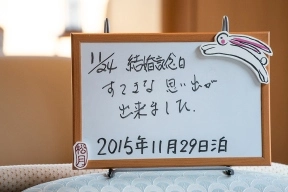 11/24 結婚記念日
すてきな思い出が
出来ました。
2015年11月29日泊
松月